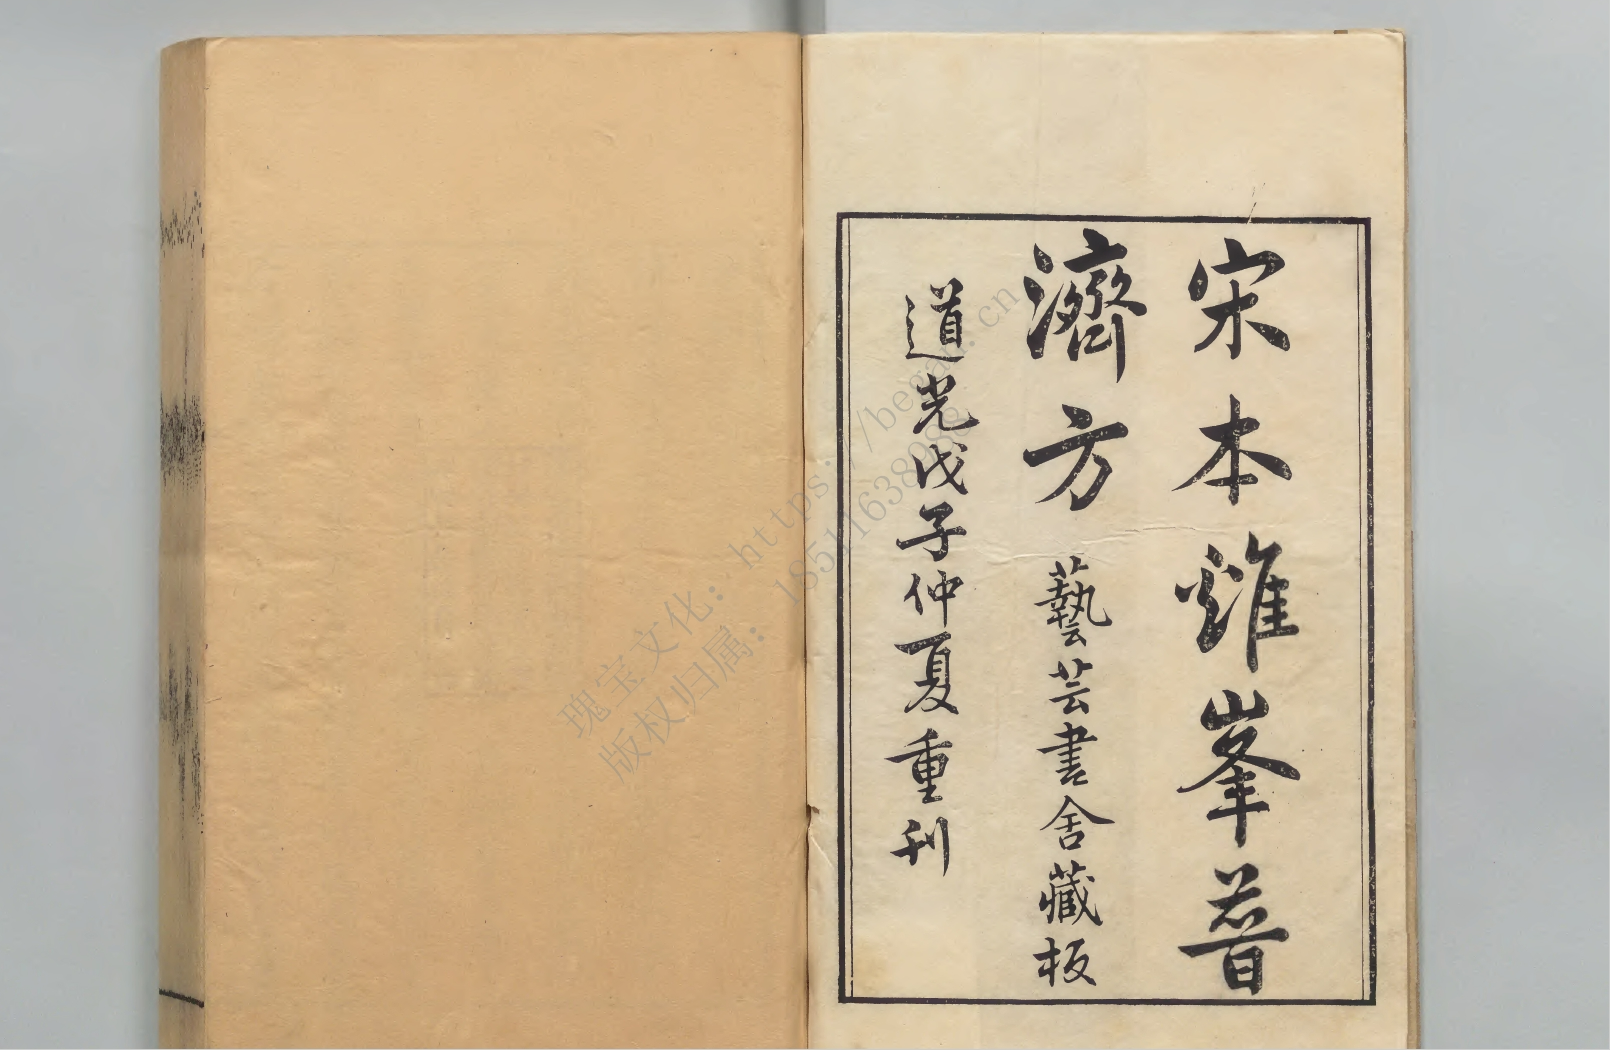 宋本雞峯普
濟方
藝芸書舍藏板
道光戊子仲夏重刊
瑰宝文化：
版权归属：